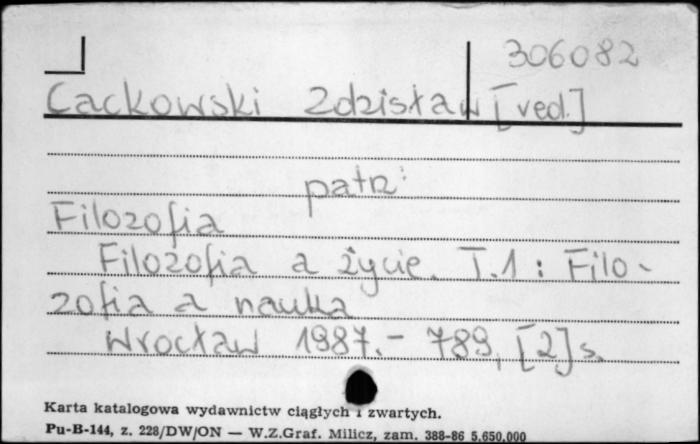 306082
Cackowski Zdzisław [red.]
patrz:
Filozofia
Filozofia a życie. T.1 : Filo-
zofia a nauka
Wrocław 1987.- 789, [2] s.
Karta katalogowa wydawnictw ciągłych i zwartych.
Pu-B-144, z. 228/DW/ON — W.Z.Graf. Milicz, zam. 388-86 5.650.000